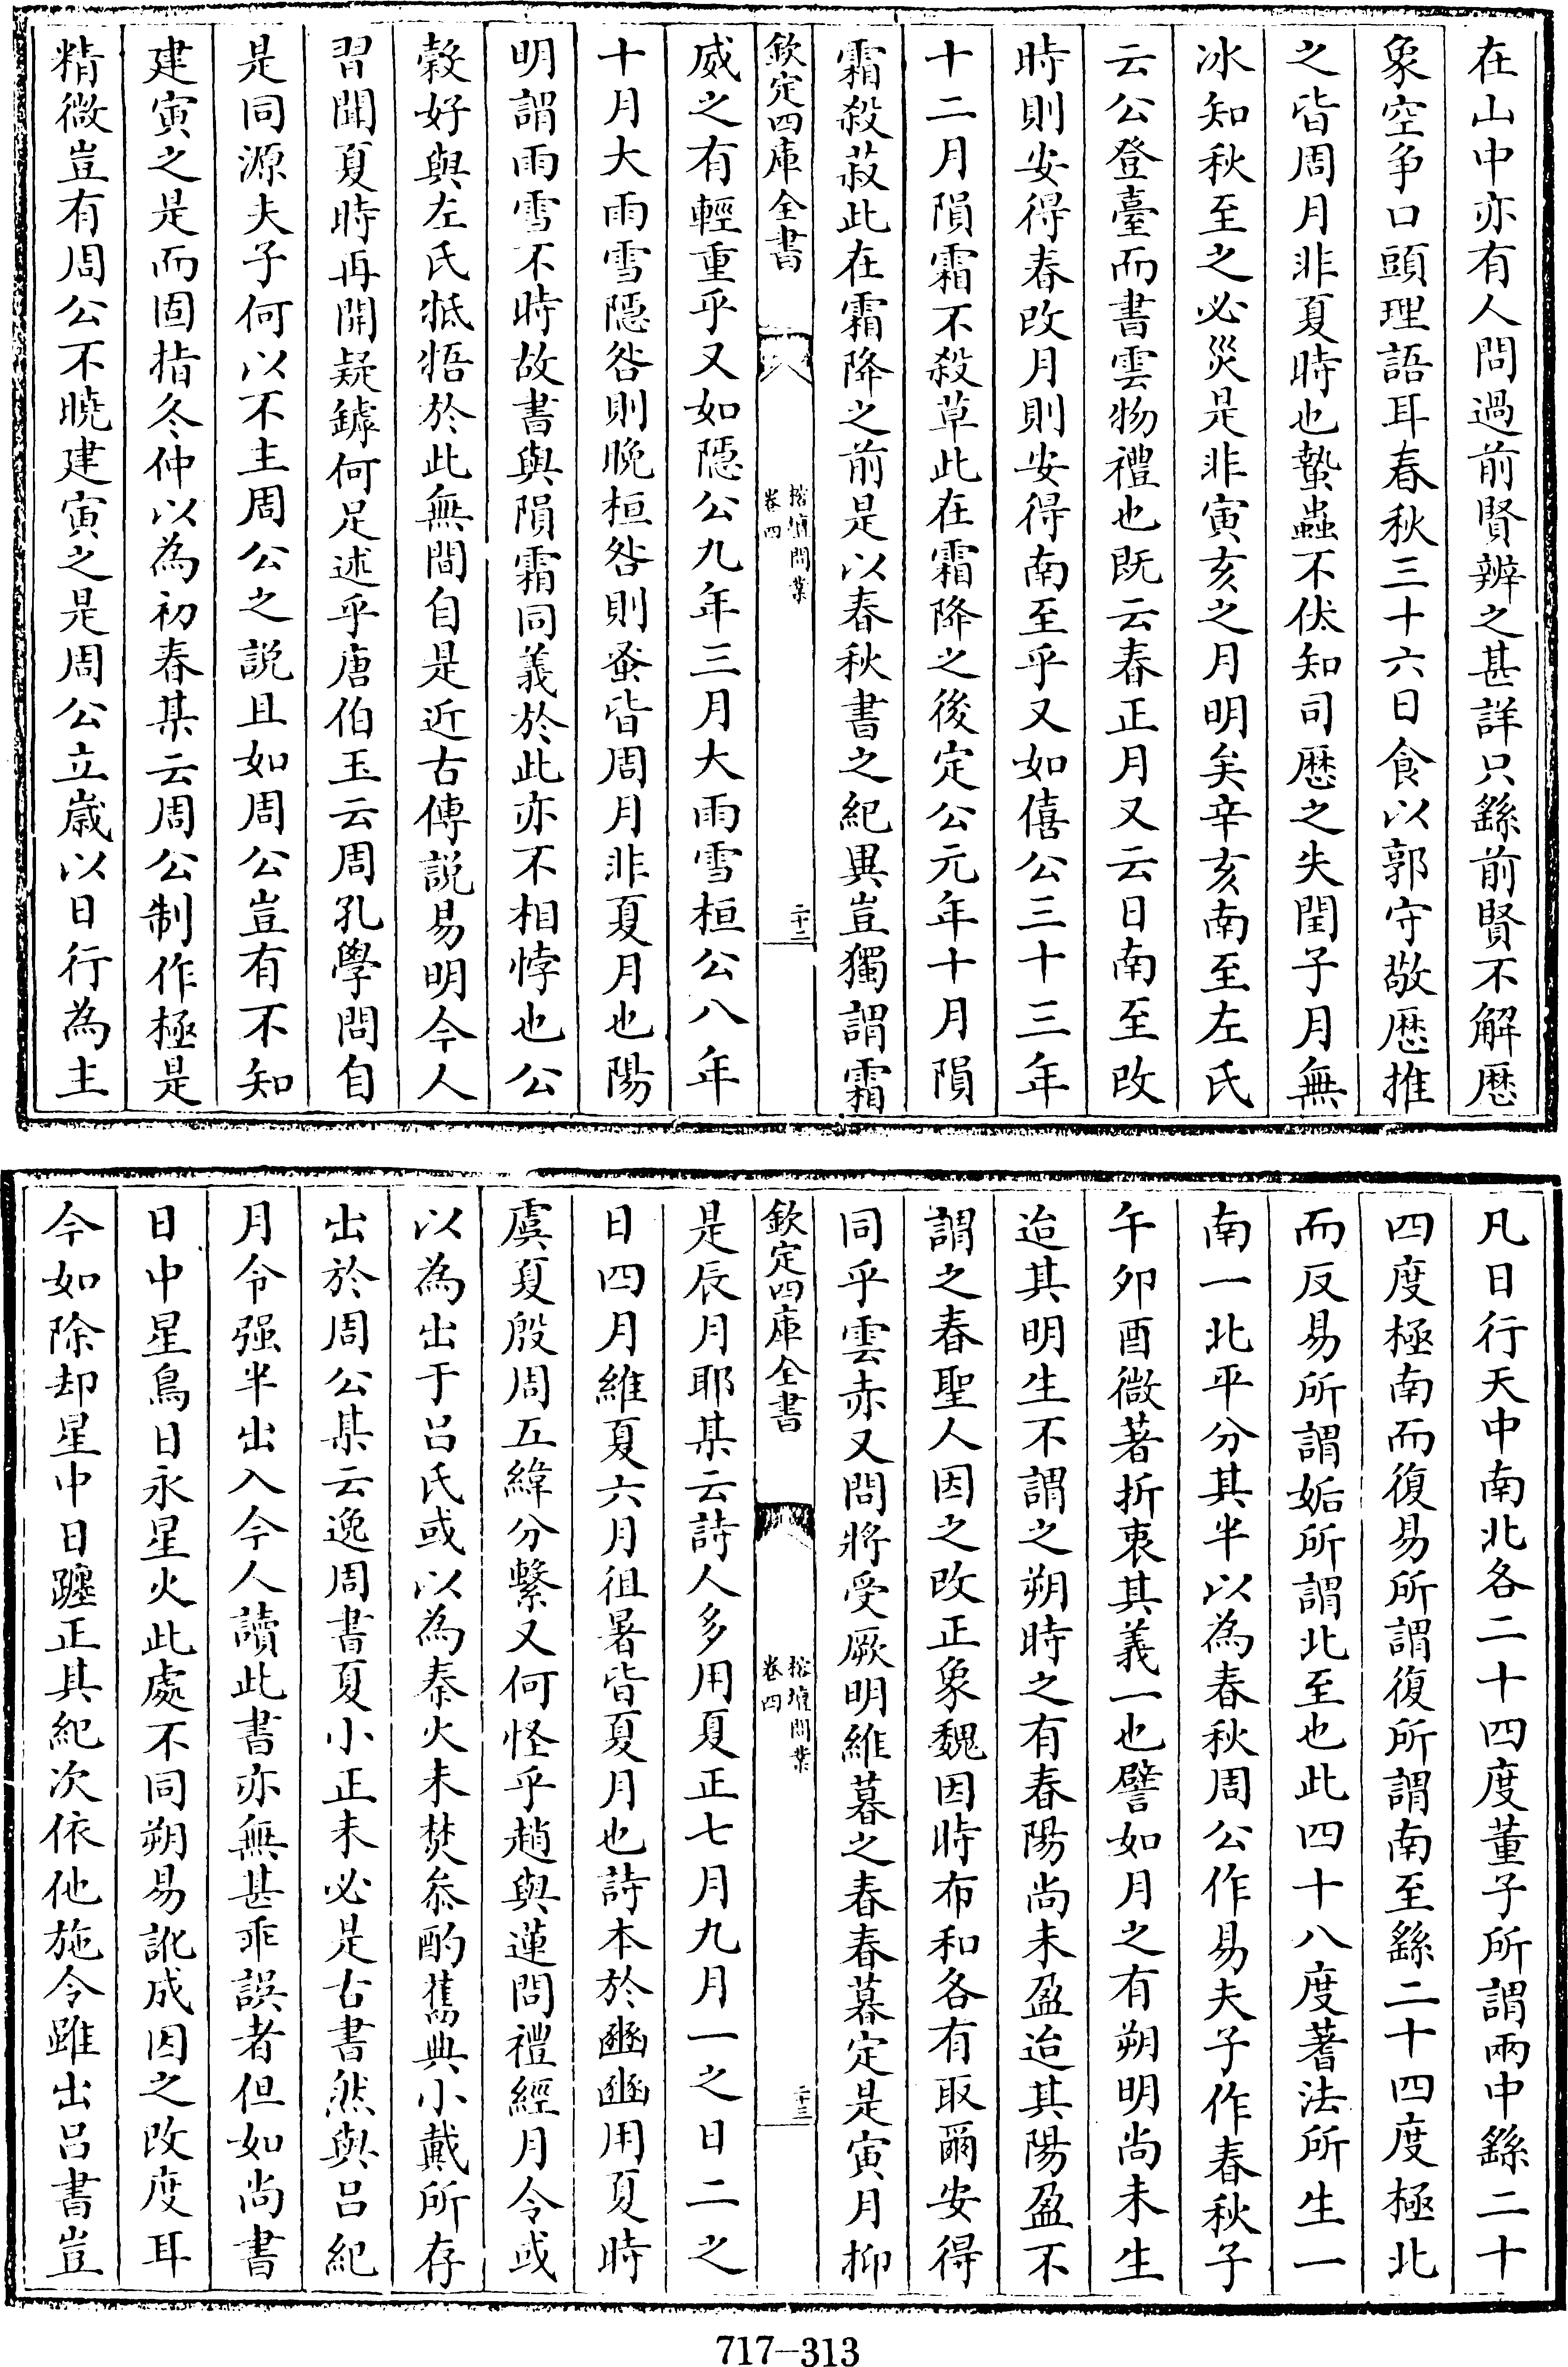 在山中亦有人問過前賢辨之甚詳只繇前賢不解厯
象空争口頭理語耳春秋三十六日食以郭守敬厯推
之皆周月非夏時也蟄蟲不伏知司厯之失閏子月無
冰知秋至之必災是非寅亥之月明矣辛亥南至左氏
云公登臺而書雲物禮也既云春正月又云日南至改
時則安得春改月則安得南至乎又如僖公三十三年
十二月隕霜不殺草此在霜降之後定公元年十月隕
霜殺菽此在霜降之前是以春秋書之紀異豈獨謂霜
欽定四庫全書
榕壇問業
卷四
二十二
威之有輕重乎又如隱公九年三月大雨雪桓公八年
十月大雨雪隱咎則晚桓咎則蚤皆周月非夏月也陽
明謂雨雪不時故書與隕霜同義於此亦不相悖也公
穀好與左氏牴牾於此無間自是近古傳説易明今人
習聞夏時再開疑鏬何足述乎唐伯玉云周孔學問自
是同源夫子何以不主周公之説且如周公豈有不知
建寅之是而固指冬仲以為初春某云周公制作極是
精微豈有周公不曉建寅之是周公立嵗以日行為主
凡日行天中南北各二十四度董子所謂兩中繇二十
四度極南而復易所謂復所謂南至繇二十四度極北
而反易所謂姤所謂北至也此四十八度蓍法所生一
南一北平分其半以為春秋周公作易夫子作春秋子
午夘酉微著折衷其義一也譬如月之有朔明尚未生
迨其明生不謂之朔時之有春陽尚未盈迨其陽盈不
謂之春聖人因之改正象魏因時布和各有取爾安得
同乎雲赤又問將受厥明維暮之春春暮定是寅月抑
欽定四庫全書
榕壇問業
卷四
二十三
是辰月耶某云詩人多用夏正七月九月一之日二之
日四月維夏六月徂暑皆夏月也詩本於豳豳用夏時
虞夏殷周五緯分繫又何怪乎趙與蓮問禮經月令或
以為出于吕氏或以為秦火未焚叅酌舊典小戴所存
出於周公某云逸周書夏小正未必是古書然與吕紀
月令强半出入今人讀此書亦無甚乖誤者但如尚書
日中星鳥日永星火此處不同朔易訛成因之改度耳
今如除却星中日躔正其紀次依他施令雖出吕書豈
717—313